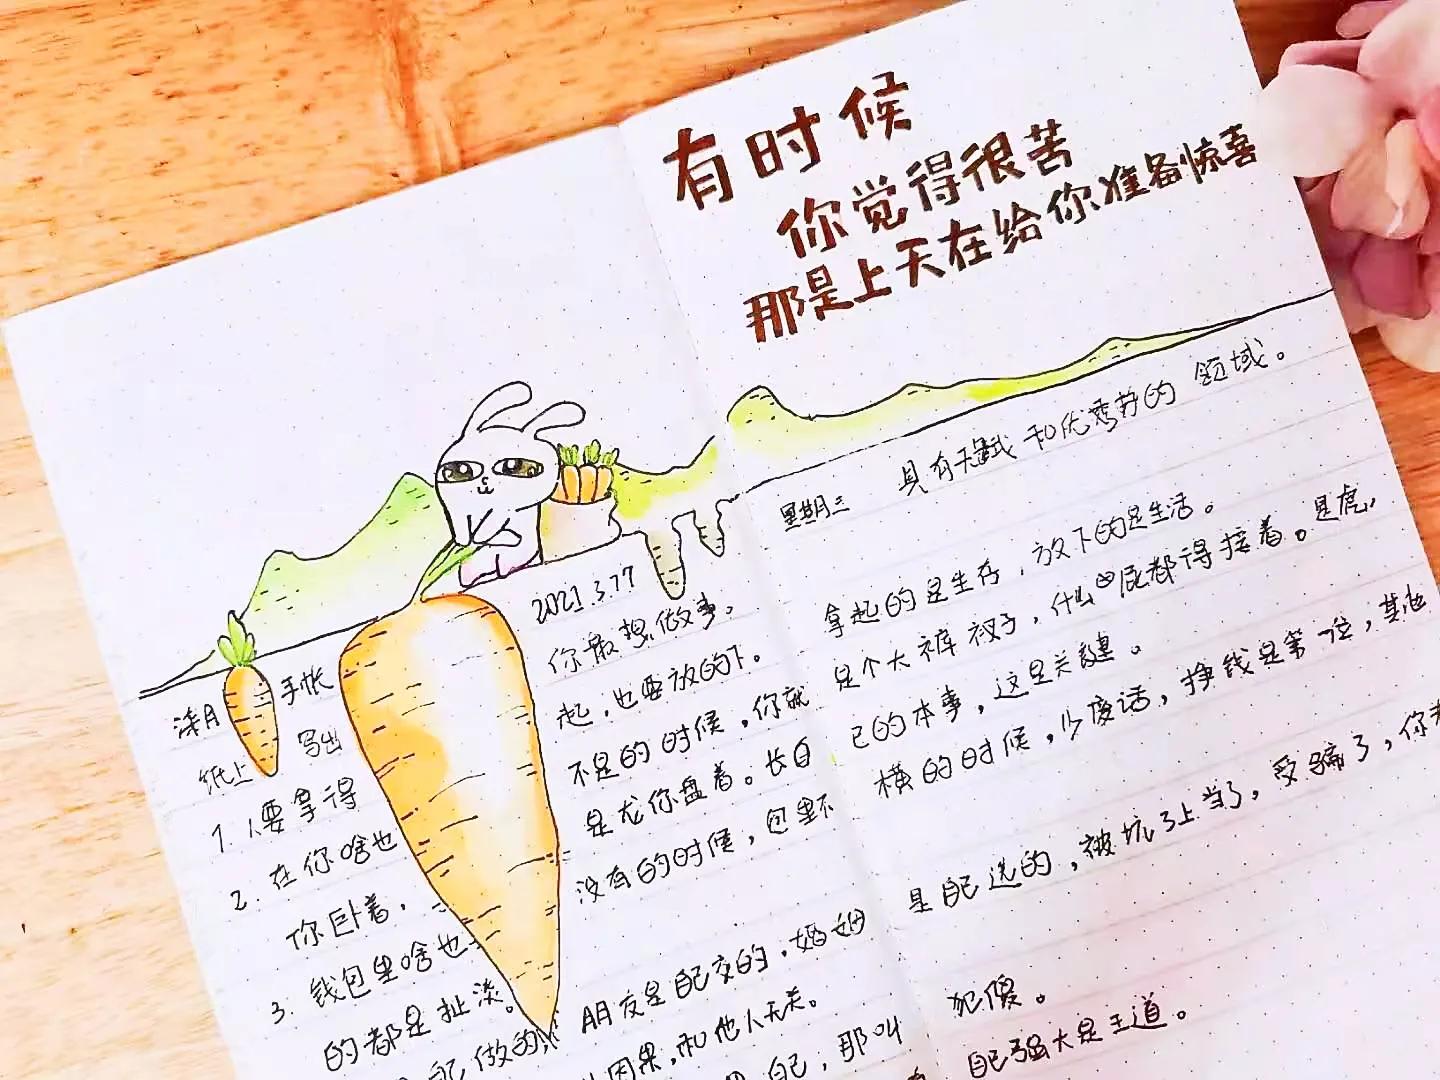 有时候
你觉得很苦
那是上天在给你准备惊喜
涂月 手帐 2021.3.17 星期三
纸上 写出 你最想做事, 具有天赋 和优秀势的 领域。
1. 要拿得 起,也要放的下。 拿起的是生存,放下的是生活。
2. 在你啥也 不是的时候,你就 是个大裤衩子,什么 屁都得接着。是虎,
你卧着, 是龙你盘着。长自 己的本事,这是关键。
3. 钱包里啥也 没有的时候,包里不 横的时候,少废话,挣钱是第一位,其他
的都是扯淡。
自己做的, 朋友是自己交的,婚姻 是自己选的,被坑了上当了,受骗了,你
因果,和他人无关。
自己,那叫 犯傻。
自己强大是王道。